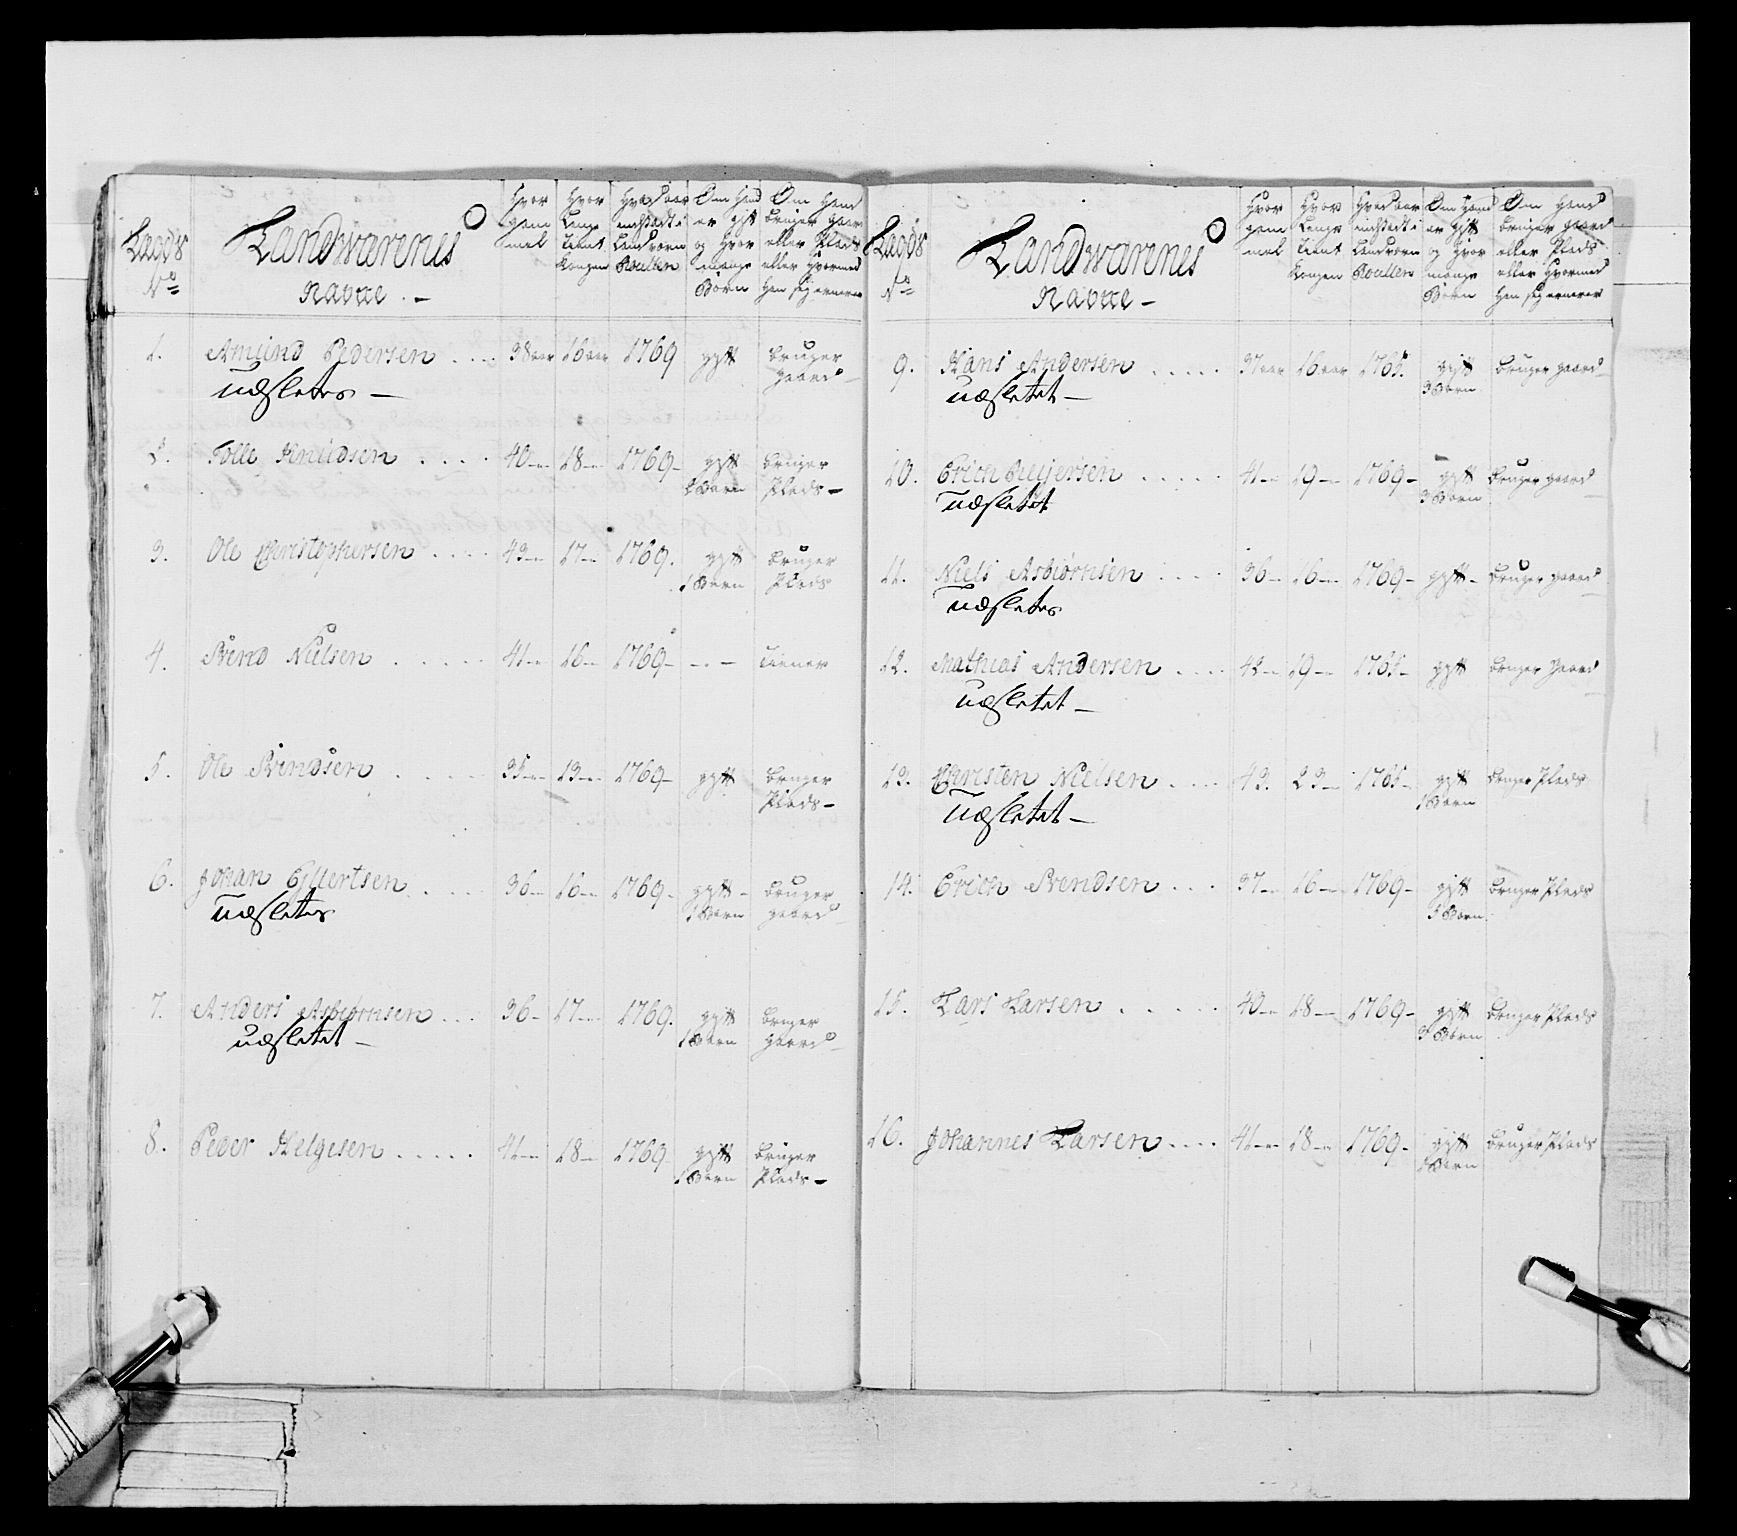 Laods
No
Landwærnes
Navne . -
Hvor
gam
mel
Hvor
Lenge
tient
Kongen
Hvad aar
indsadt i
Landværn
Roullen
Om Hand
er gift
og Hvor
mange
Børn
Om Hand
bruger gaard
eller Plads
eller Hvormed
Han sig ernærer
1. Amund Pedersen . . . . 38 aar 16 aar 1769 gift bruger
gaard
udslettes -
2. Tolle Knudsen . . . . 40 18 1769 - gift bruger
2 Børn Plads -
3. Ole Christophersen . . . . 43 17 1769. gift bruger
1 Børn Plads
4. Svend Nielsen . . . . . 41 16 1769 - - . - tiener
5. Ole Svendsen . . . . 35 13 1769 - gift bruger
Plads -
6. Johan Gillertsen . . . . 36 16 1769 - gift - bruger
1 Børn gaard
udslettes
7. Anders Asbiørnsen . . . 36 - 17 1769. gift bruger
1 Børn gaard
udslettet -
8. Peder Helgesen . . . . . 41 18 1769 gift bruger
1 Børn Plads -
Laods
No
Landwærnes
Navne -
Hvor
gam
mel
Hvor
Lenge
tient
Kongen
Hvad aar
indsadt i
Landværn
Roullen
Om Hand
er gift
og Hvor
mange
Børn
Om Hand
bruger gaard
eller Plads
eller Hvormed
Han sig ernærer
9. Hans Andersen . . . . . 37 aar 16 aar 1765. gift bruger gaard
3 Børn
udslettet -
10. Erich . . . . . 41 19 1769 - gift bruger gaard
3 Børn
udslettet
11. Niels Asbiørnsen . . . . 36 16 1769 - gift - bruger gaard
udslettes
12. Mathias Andersen . . . . 42 19 1765 - gift bruger gaard
udslettet -
13. Christen Nielsen . . . . 43. 23 1765 - gift bruger Plads
1 Børn
udslettet -
14. Erich Svendsen . . . 37 16 1769 - gift bruger Plads
3 Børn
15. Lars Larsen . . . . . 40 18 1769 - gift bruger Plads
3 Børn
16. Johannes Larsen . . . . 41 18 1769 - gift bruger Plads
1 Børn